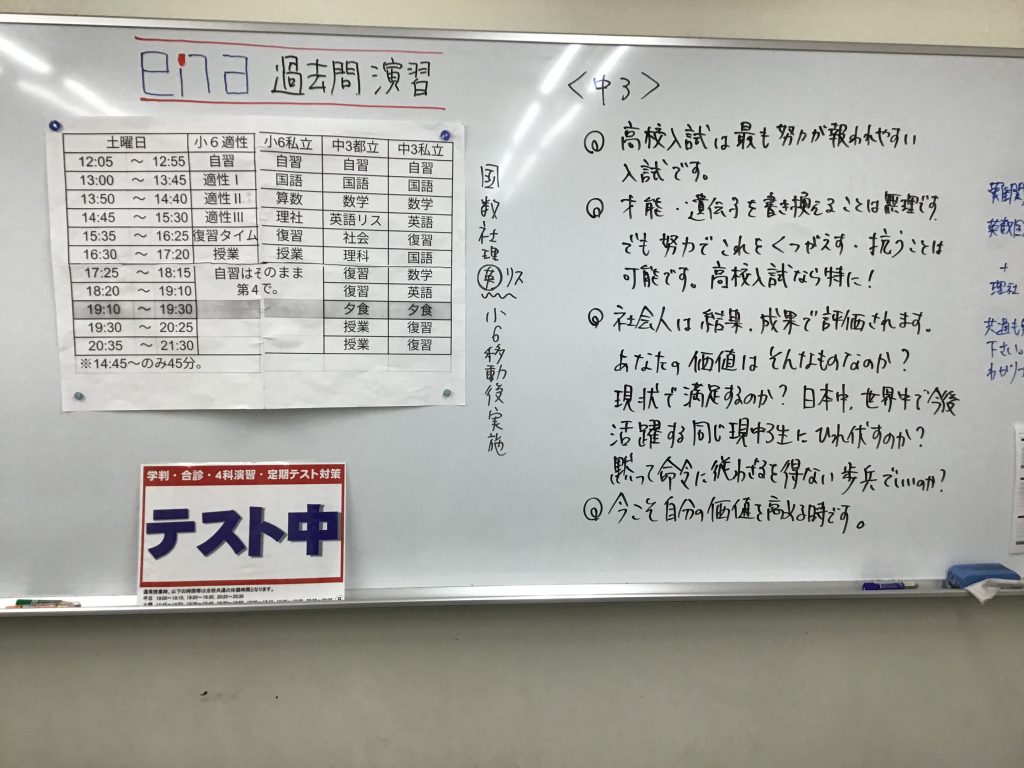 ena 過去問演習
土曜日 小6適性 小6私立 中3都立 中3私立
12:05 ～ 12:55 自習 自習 自習 自習
13:00 ～ 13:45 適性Ⅰ 国語 国語 国語
13:50 ～ 14:40 適性Ⅱ 算数 数学 数学
14:45 ～ 15:30 適性Ⅲ 理社 英語リス 英語
15:35 ～ 16:25 復習タイム 復習 社会 復習
16:30 ～ 17:20 授業 授業 理科 国語
17:25 ～ 18:15 自習はそのまま 復習 数学
18:20 ～ 19:10 第4で。 復習 英語
19:10 ～ 19:30 夕食 夕食
19:30 ～ 20:25 授業 復習
20:35 ～ 21:30 授業 復習
※14:45～のみ45分。
国数社理英リス
小6移動後実施
学判・合診・4科演習・定期テスト対策
テスト中
<中3>
高校入試は最も努力が報われやすい
入試です。
才能・遺伝子を書き換えることは無理です
でも努力でこれをくつがえす・抗うことは
可能です。高校入試なら特に！
社会人は結果、成果で評価されます。
あなたの価値はそんなものなのか？
現状で満足するのか？日本中、世界中で今後
活躍する同じ現中3生にひれ伏すのか？
黙って命令に従わざるを得ない歩兵でいいのか？
今こそ自分の価値を高める時です。
+
理社
下さい